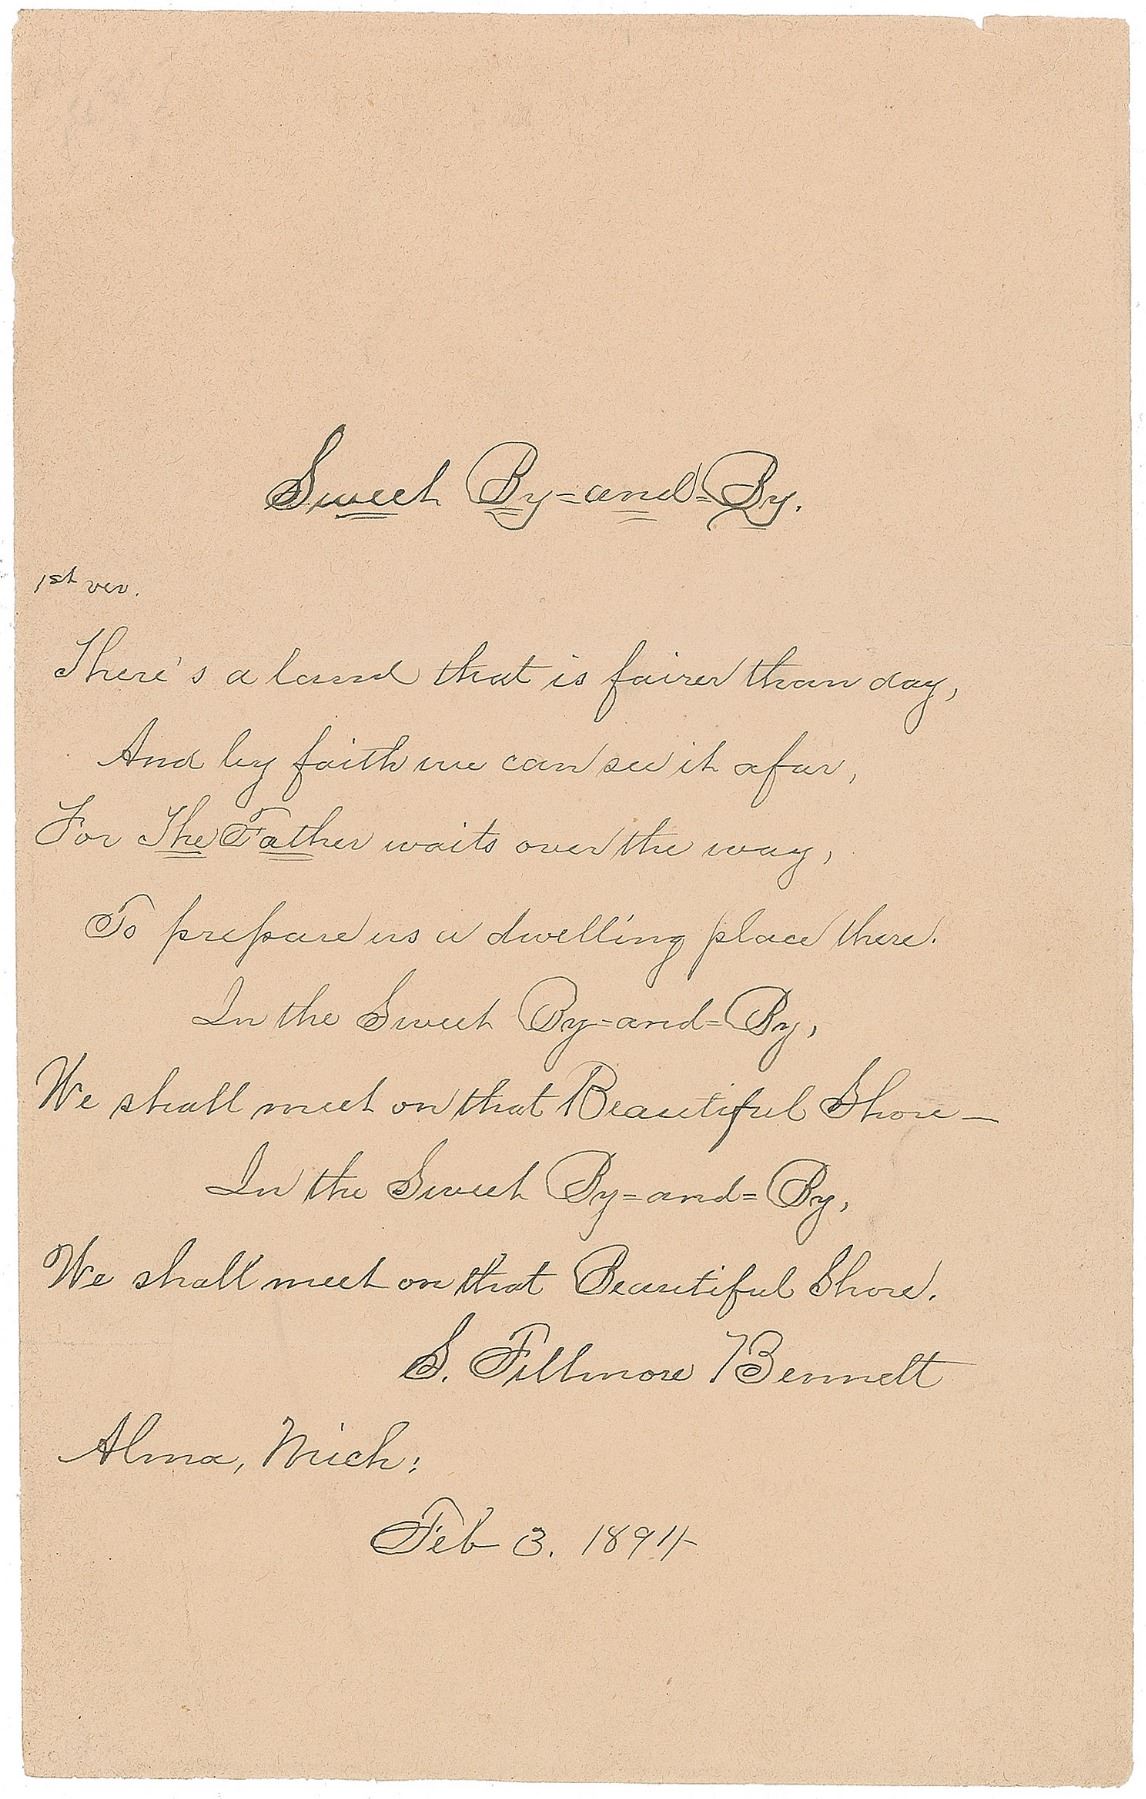 Sweet By=and=By.
1st ver.
There's a land that is fairer than day,
And by faith we can see it afar,
For The Father waits over the way,
To prepare us a dwelling place there.
In the Sweet By=and=By,
We shall meet on that Beautiful Shore—
In the Sweet By=and=By,
We shall meet on that Beautiful Shore.
S. Fillmore Bennett
Alma, Mich:
Feb 3. 1894